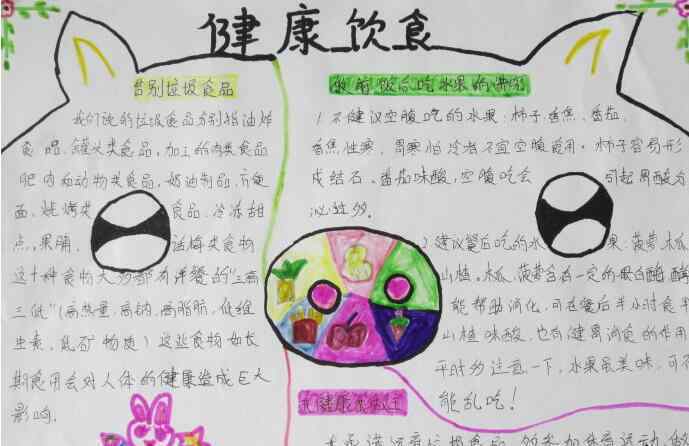 健康饮食
告别垃圾食品
我们说的垃圾食品分别指油炸
食品、罐头类食品，加工的肉类食品
肥肉和动物类食品，奶油制品、方便
面、烧烤类食品、冷冻甜
点、果脯、话梅类食物
这十种食物大多都有洋餐的“三高
三低”(高热量、高钠、高脂肪、低维
生素、低矿物质)这些食物如长
期食用会对人体的健康造成巨大
影响.
饭前饭后吃水果的讲究
1.不建议空腹吃的水果：柿子、香蕉、番茄，
香蕉性寒，胃寒怕冷者不宜空腹食用。柿子容易形
成结石、番茄味酸，空腹吃会引起胃酸分
泌过多.
2.建议餐后吃的水果：菠萝、木瓜
山楂。木瓜、菠萝含有一定的蛋白酶
能帮助消化，可在餐后半小时食
山楂味酸，也有健胃消食的作用
平时多注意一下，水果虽美味，可不
能乱吃！
健康